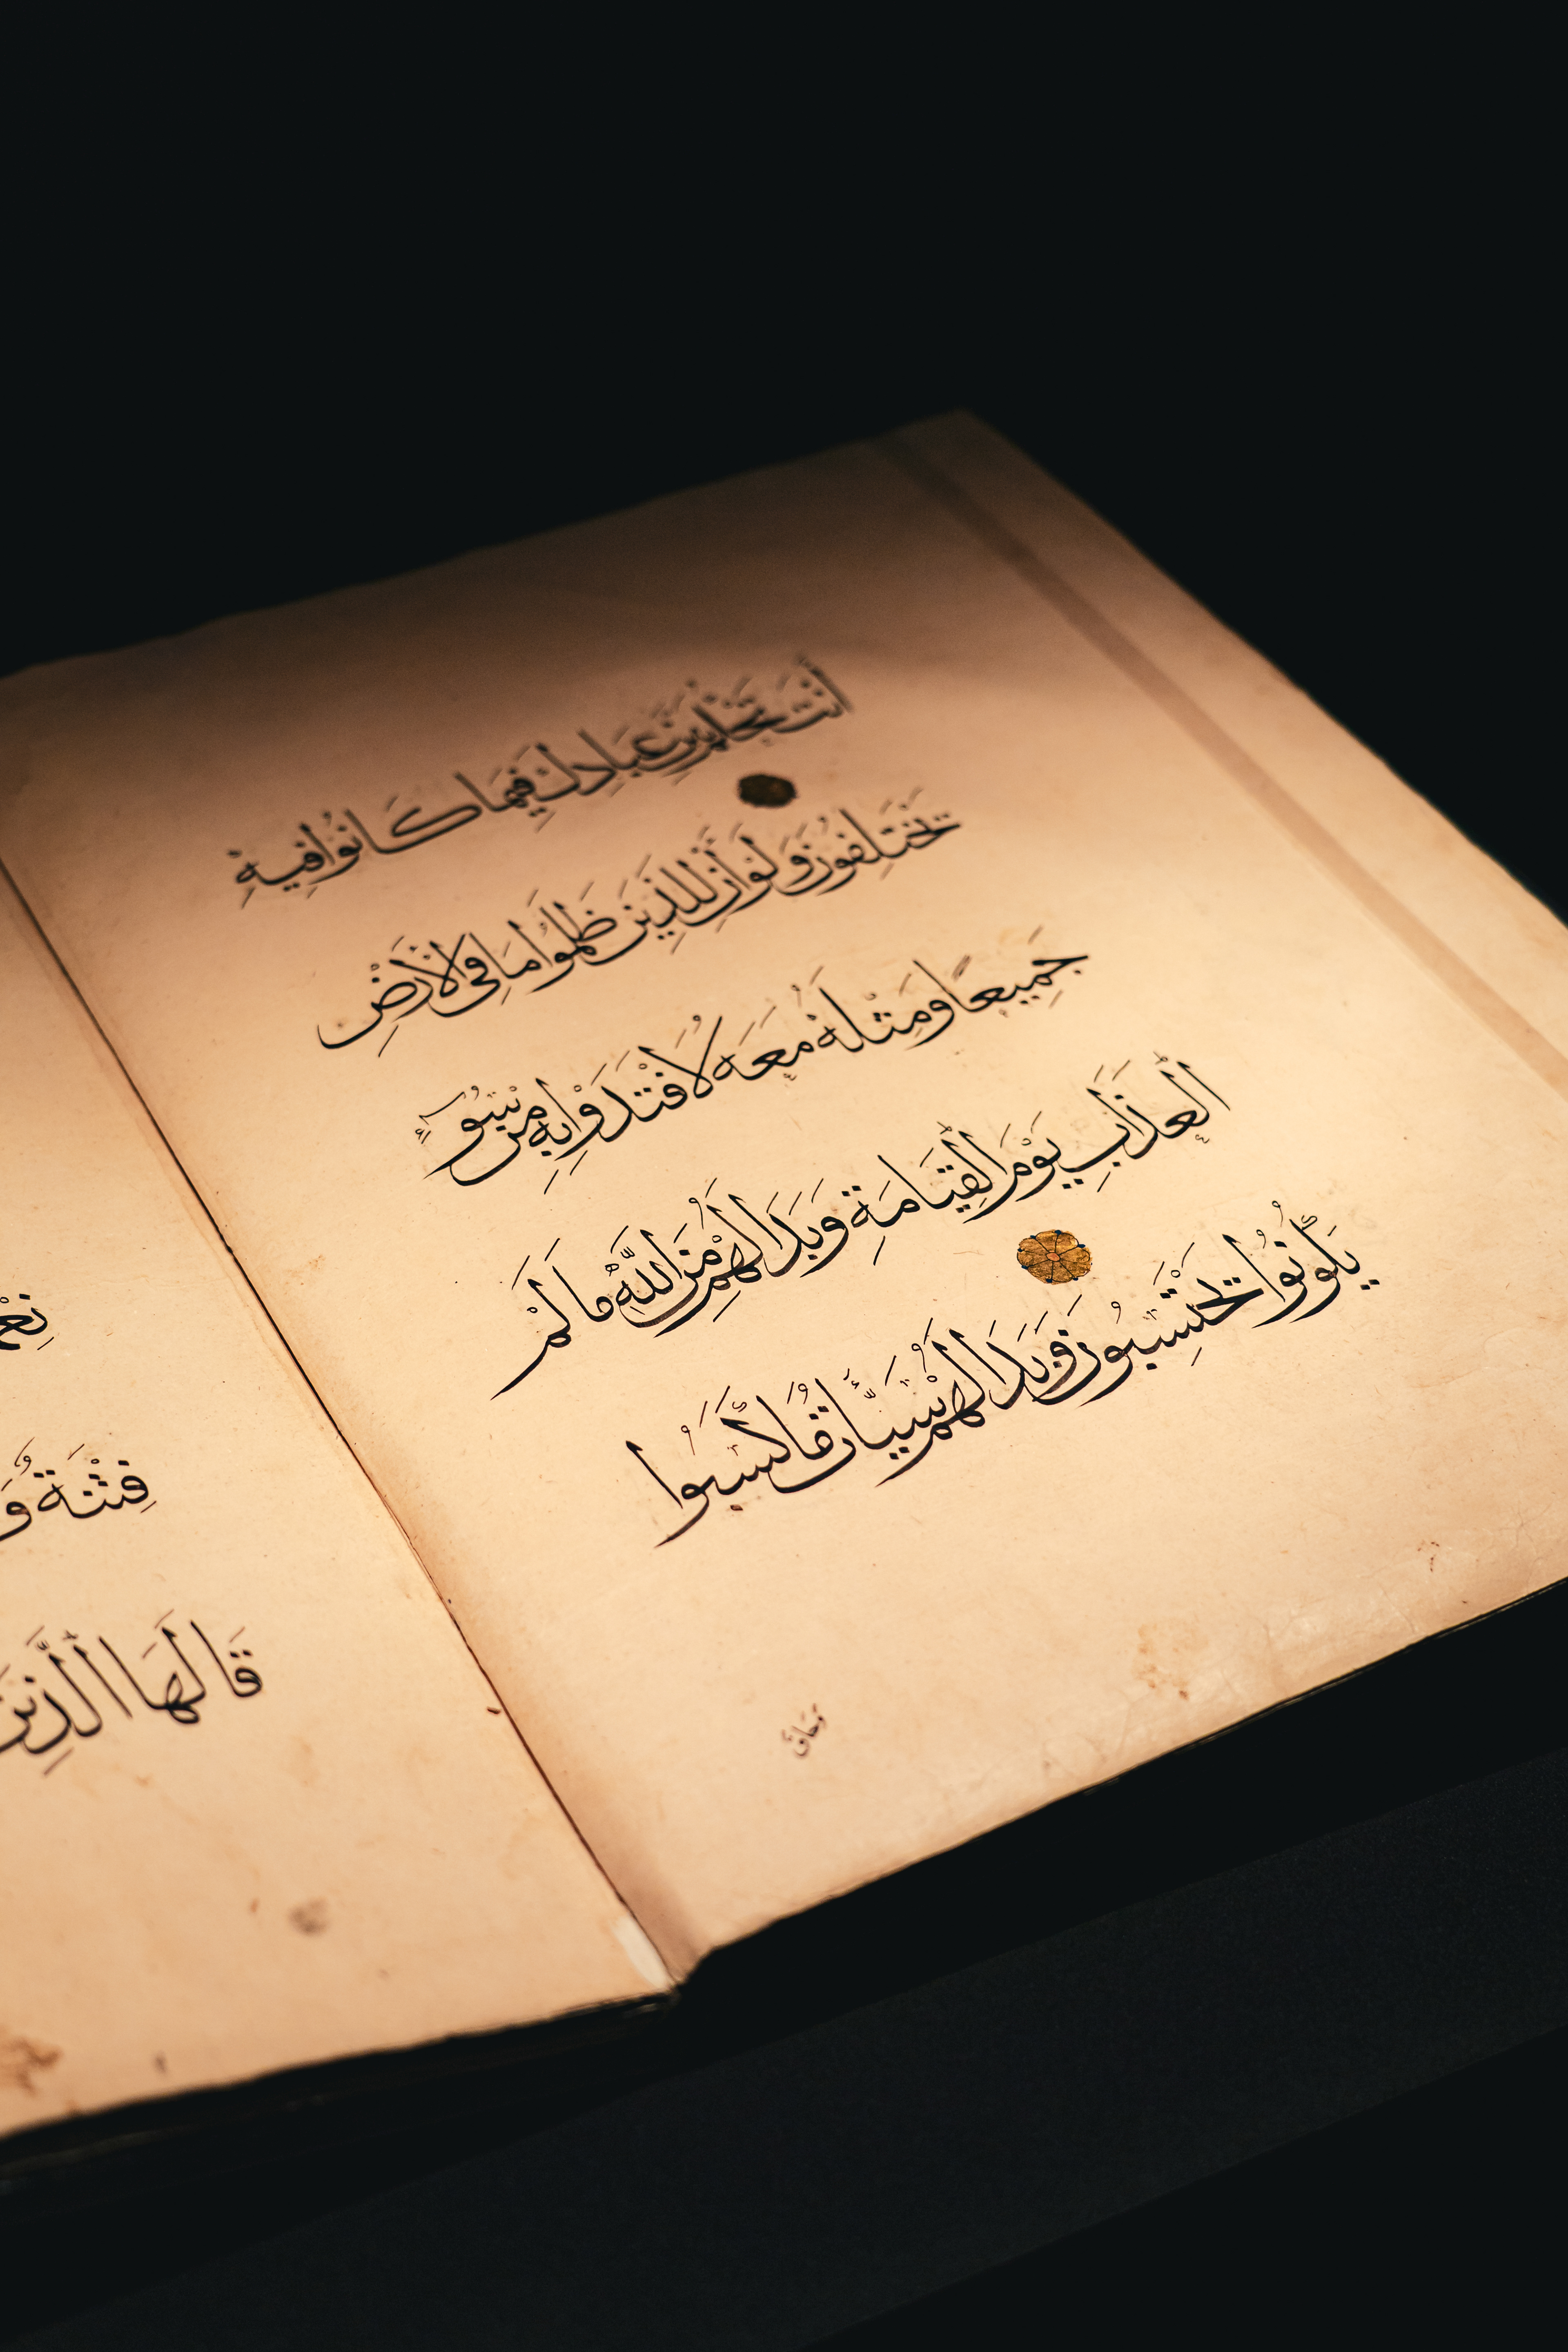 أَنْتَ تَحْكُمُ بَيْنَ عِبَادِكَ فِيمَا كَانُوا فِيهِ
يَخْتَلِفُونَ وَلَوْ أَنَّ لِلَّذِينَ ظَلَمُوا مَا فِي الْأَرْضِ
جَمِيعًا وَمِثْلَهُ مَعَهُ لَافْتَدَوْا بِهِ مِنْ سُوءِ
الْعَذَابِ يَوْمَ الْقِيَامَةِ وَبَدَا لَهُمْ مِنَ اللَّهِ مَا لَمْ
يَكُونُوا يَحْتَسِبُونَ وَبَدَا لَهُمْ سَيِّئَاتُ مَا كَسَبُوا
وَحَاقَ
فِتْنَةٌ وَ
قَالَهَا الَّذِينَ